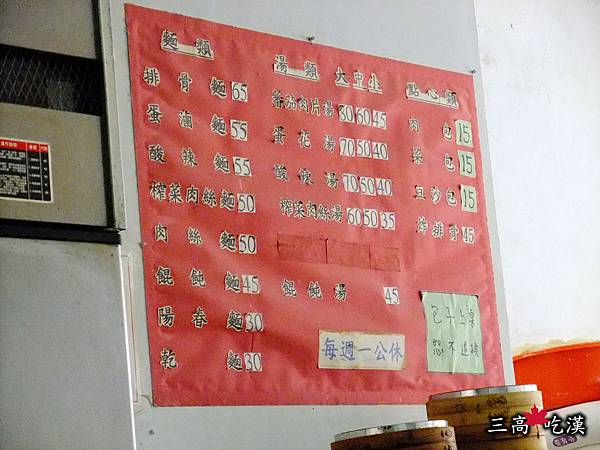 麵類
排骨麵65
蛋滷麵55
酸辣麵55
榨菜肉絲麵50
肉絲麵50
餛飩麵45
陽春麵30
乾麵30
湯類 大中小
蕃茄肉片湯 80 60 45
蛋花湯 70 50 40
酸辣湯 70 50 40
榨菜肉絲湯 60 50 35
餛飩湯 45
每週一公休
點心類
肉包15
菜包15
豆沙包15
炸排骨45
包子上桌
恕不退換
三高 吃漢